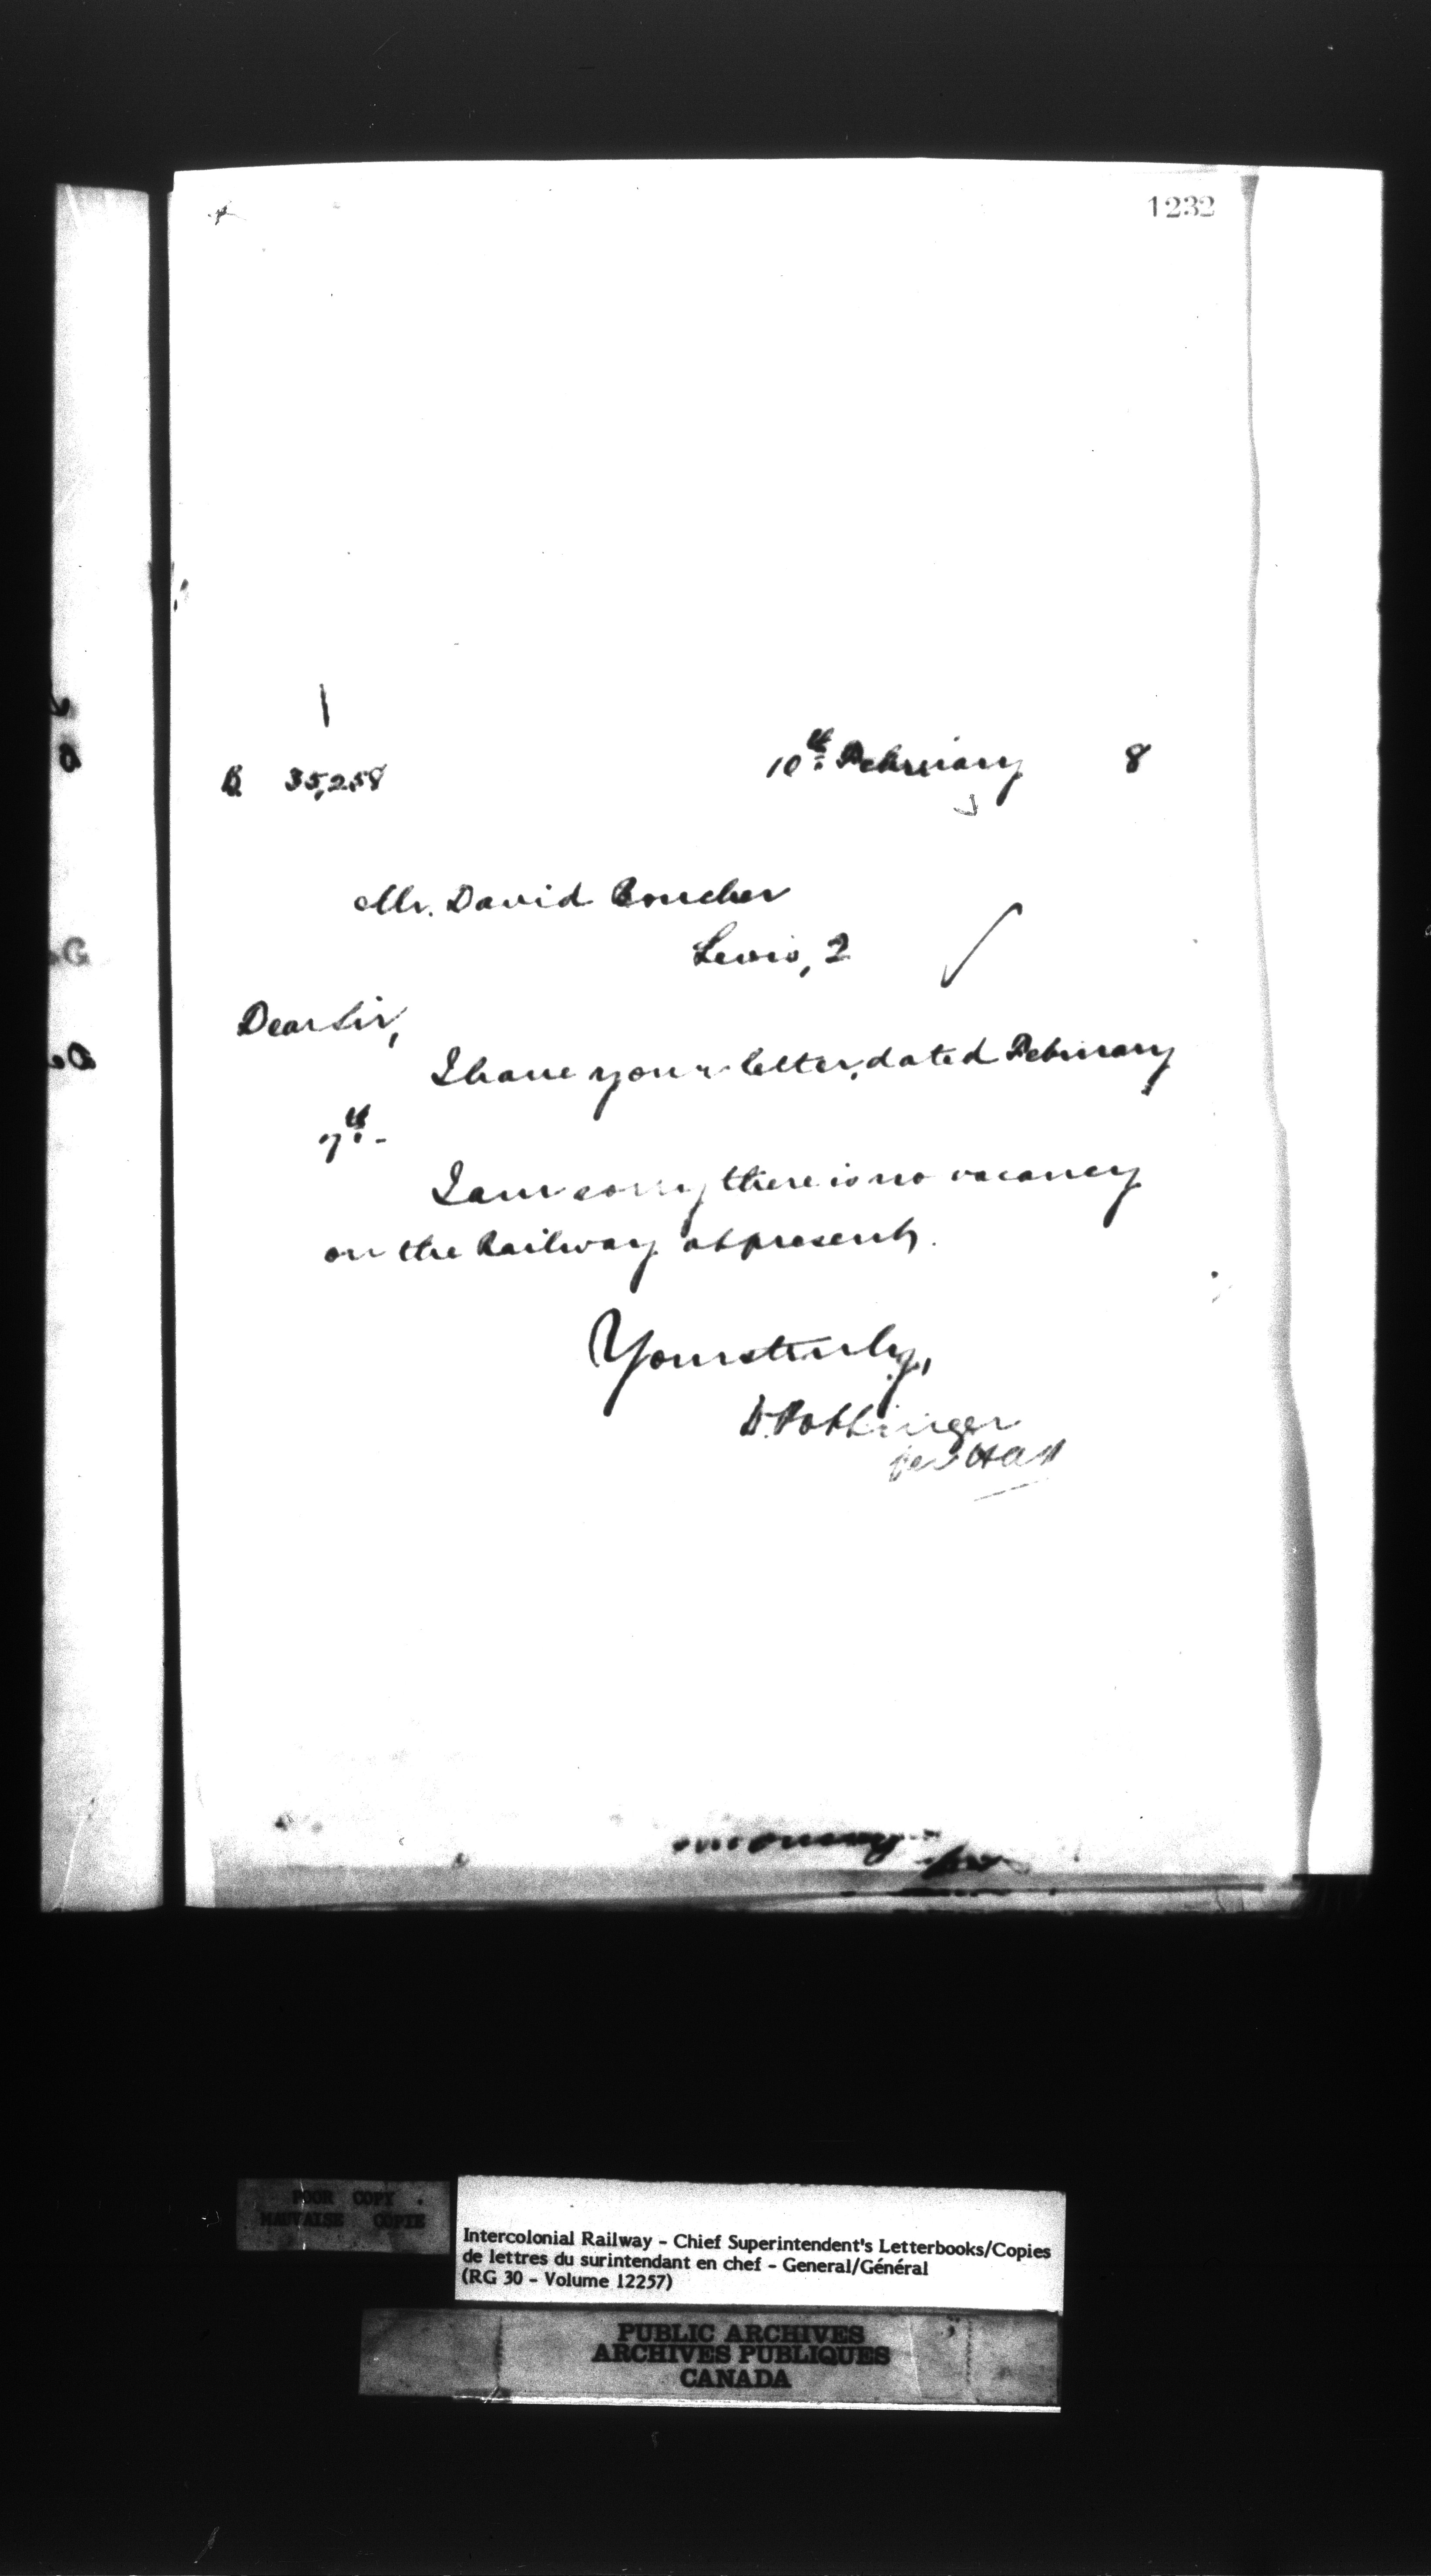 1232
B. 35,258
10th February 8
Mr. David Boucher
Levis, 2
Dear Sir,
I have your letter, dated February
7th -
I am sorry there is no vacancy
on the Railway at present.
Yours truly,
D. Pottinger
per
POOR COPY
MAUVAISE COPIE
Intercolonial Railway - Chief Superintendent's Letterbooks/Copies
de lettres du surintendant en chef - General/Général
(RG 30 - Volume 12257)
PUBLIC ARCHIVES
ARCHIVES PUBLIQUES
CANADA